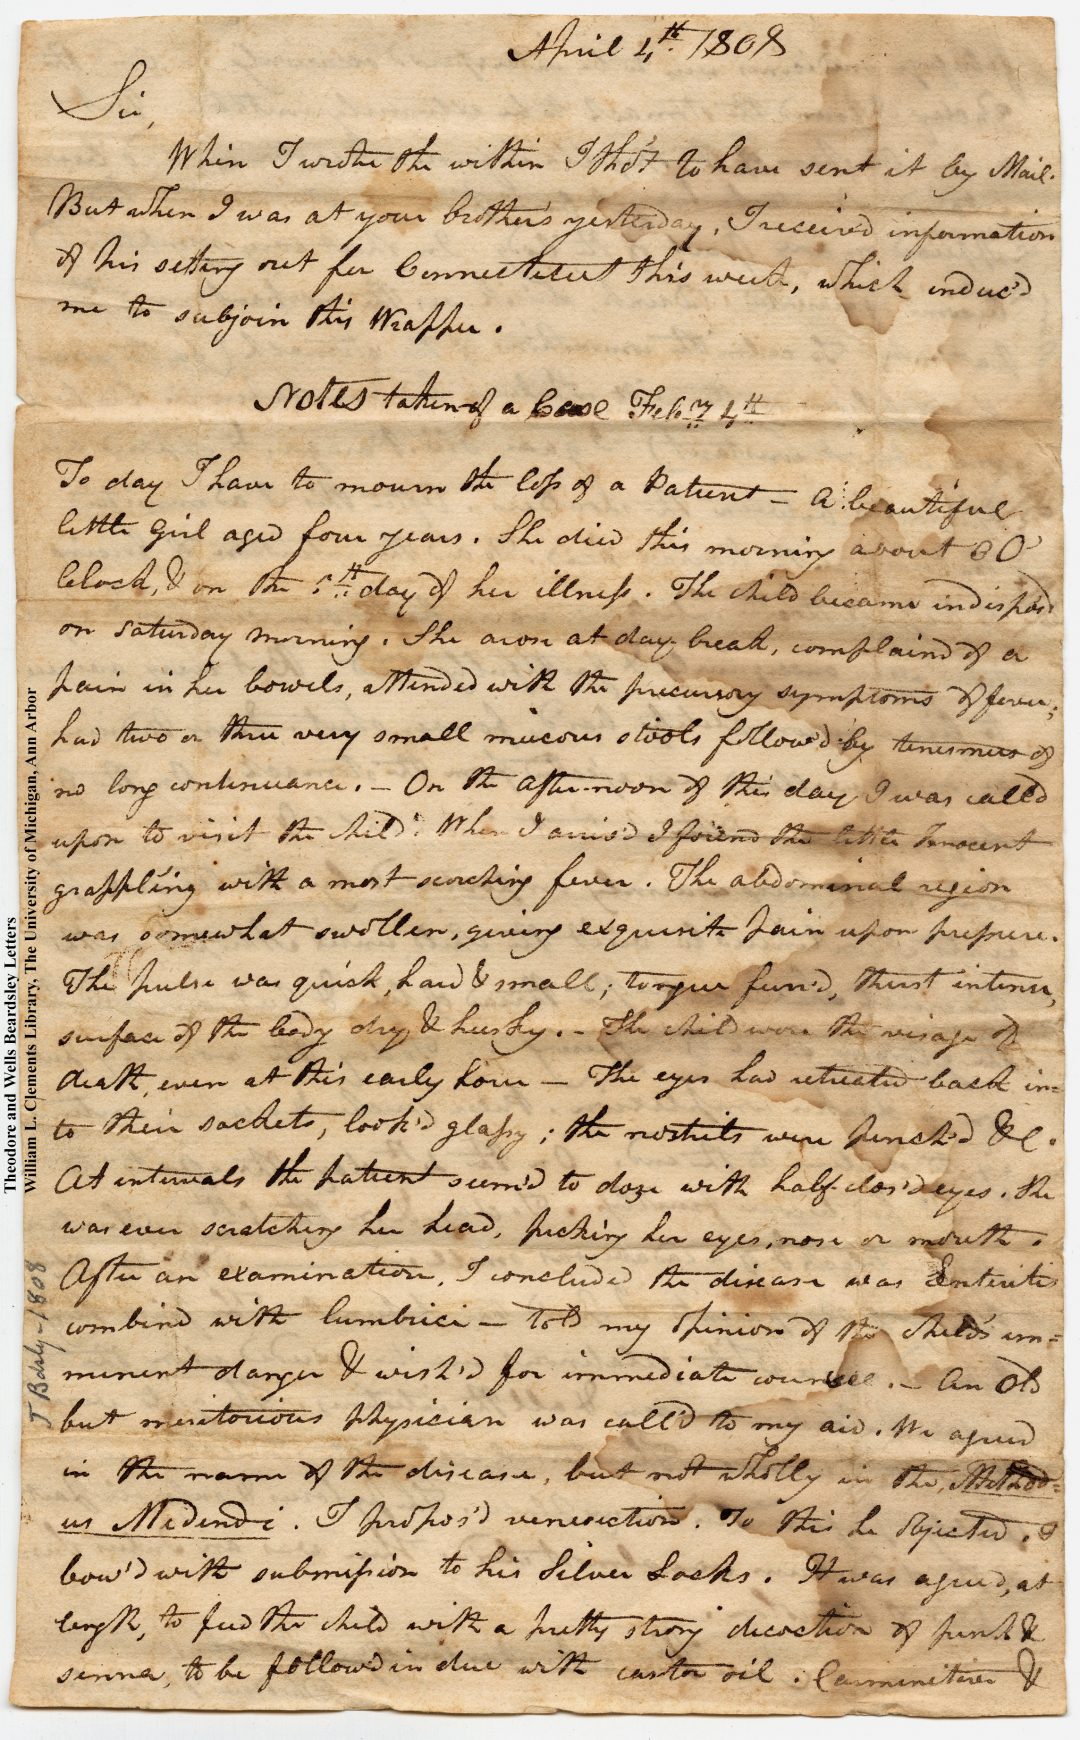 April 4th. 1808
Sir,
When I wrote the within I tho't to have sent it by Mail.
But when I was at your brother's yesterday, I receiv'd information
of his setting out for Connecticut this week, which induc'd
me to subjoin this Wrapper.
Notes taken of a Case Feb.ry 4th
To day I have to mourn the loss of a Patient — A beautiful
little Girl aged four years. She died this morning about 8 O'
Clock, & on the th day of her illness. The child became indispos'd
on Saturday morning. She arose at day-break, complain'd of a
pain in her bowels, attended with the precursory symptoms of fever;
had two or three very small mucous stools follow'd by tenesmus of
no long continuance. — On the after-noon of this day I was called
upon to visit the child. When I arriv'd I found the little Innocent
grappling with a most scorching fever. The abdominal region
was somewhat swollen, giving exquisite pain upon pressure.
The pulse was quick, hard & small; tongue furr'd, thirst intense,
surface of the body dry & husky. — The child wore the visage of
death, even at this early hour — The eyes had retreated back in=
to their sockets, look'd glassy; the nostrils were pinch'd &c.
At intervals the patient seem'd to doze with half-clos'd eyes. She
was ever scratching her head, picking her eyes, nose or mouth.
After an examination, I concluded the disease was Enteritis
combind with lumbrici — told my opinion of the child's im=
minent danger & wish'd for immediate counsel. — An Old
but meritorious physician was call'd to my aid. We agreed
in the name of the disease, but not wholly in the Method=
us Medendi. I propos'd venesection. To this he objected. I
bow'd with submission to his Silver Locks. It was agreed, at
length, to feed the child with a pretty strong decoction of pink &
senna, to be follow'd in due with castor oil. Carminitives &
J Bdsly-1808
Theodore and Wells Beardsley Letters
William L. Clements Library, The University of Michigan, Ann Arbor